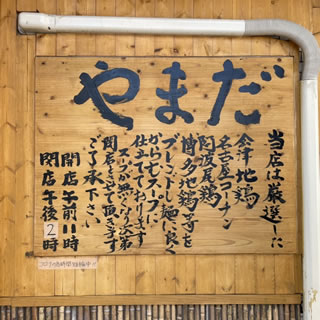 やまだ
当店は厳選した
会津地鶏
名古屋コーチン
阿波尾鶏
博多地鶏等を
ブレンドし麺に良く
がらむスープに
仕立てております
スープが無くなり次第
閉店とさせて頂きます
ご了承下さい
開店午前11時
閉店午後2時